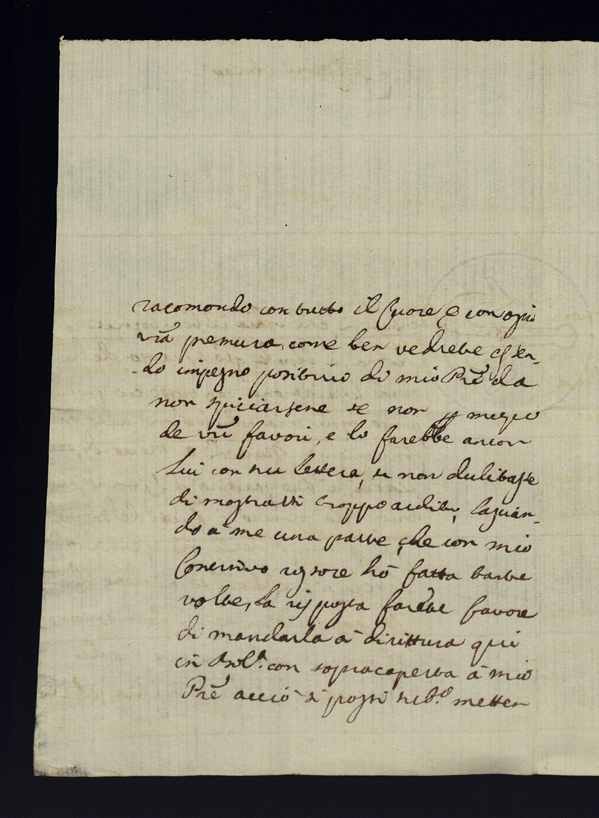 racomondo con tutto il Cuore e con ogni
vr̃a premura, come ben vedrebe essen-
do impegno di mio Prẽ da
non spicciarsene se non p mezzo
de vr̃i favori, e lo farebbe ancor
lui con sua lettera, se non dubitasse
di mostrarsi troppo ardito, lasciàn-
do à me una parte, che con mio
rossore hò fatta tante
volte, la risposta farebe favore
di mandarla à dirittura qui
in Bol.ª con sopracoperta à mio
Prẽ acciò si possi sub.º metter